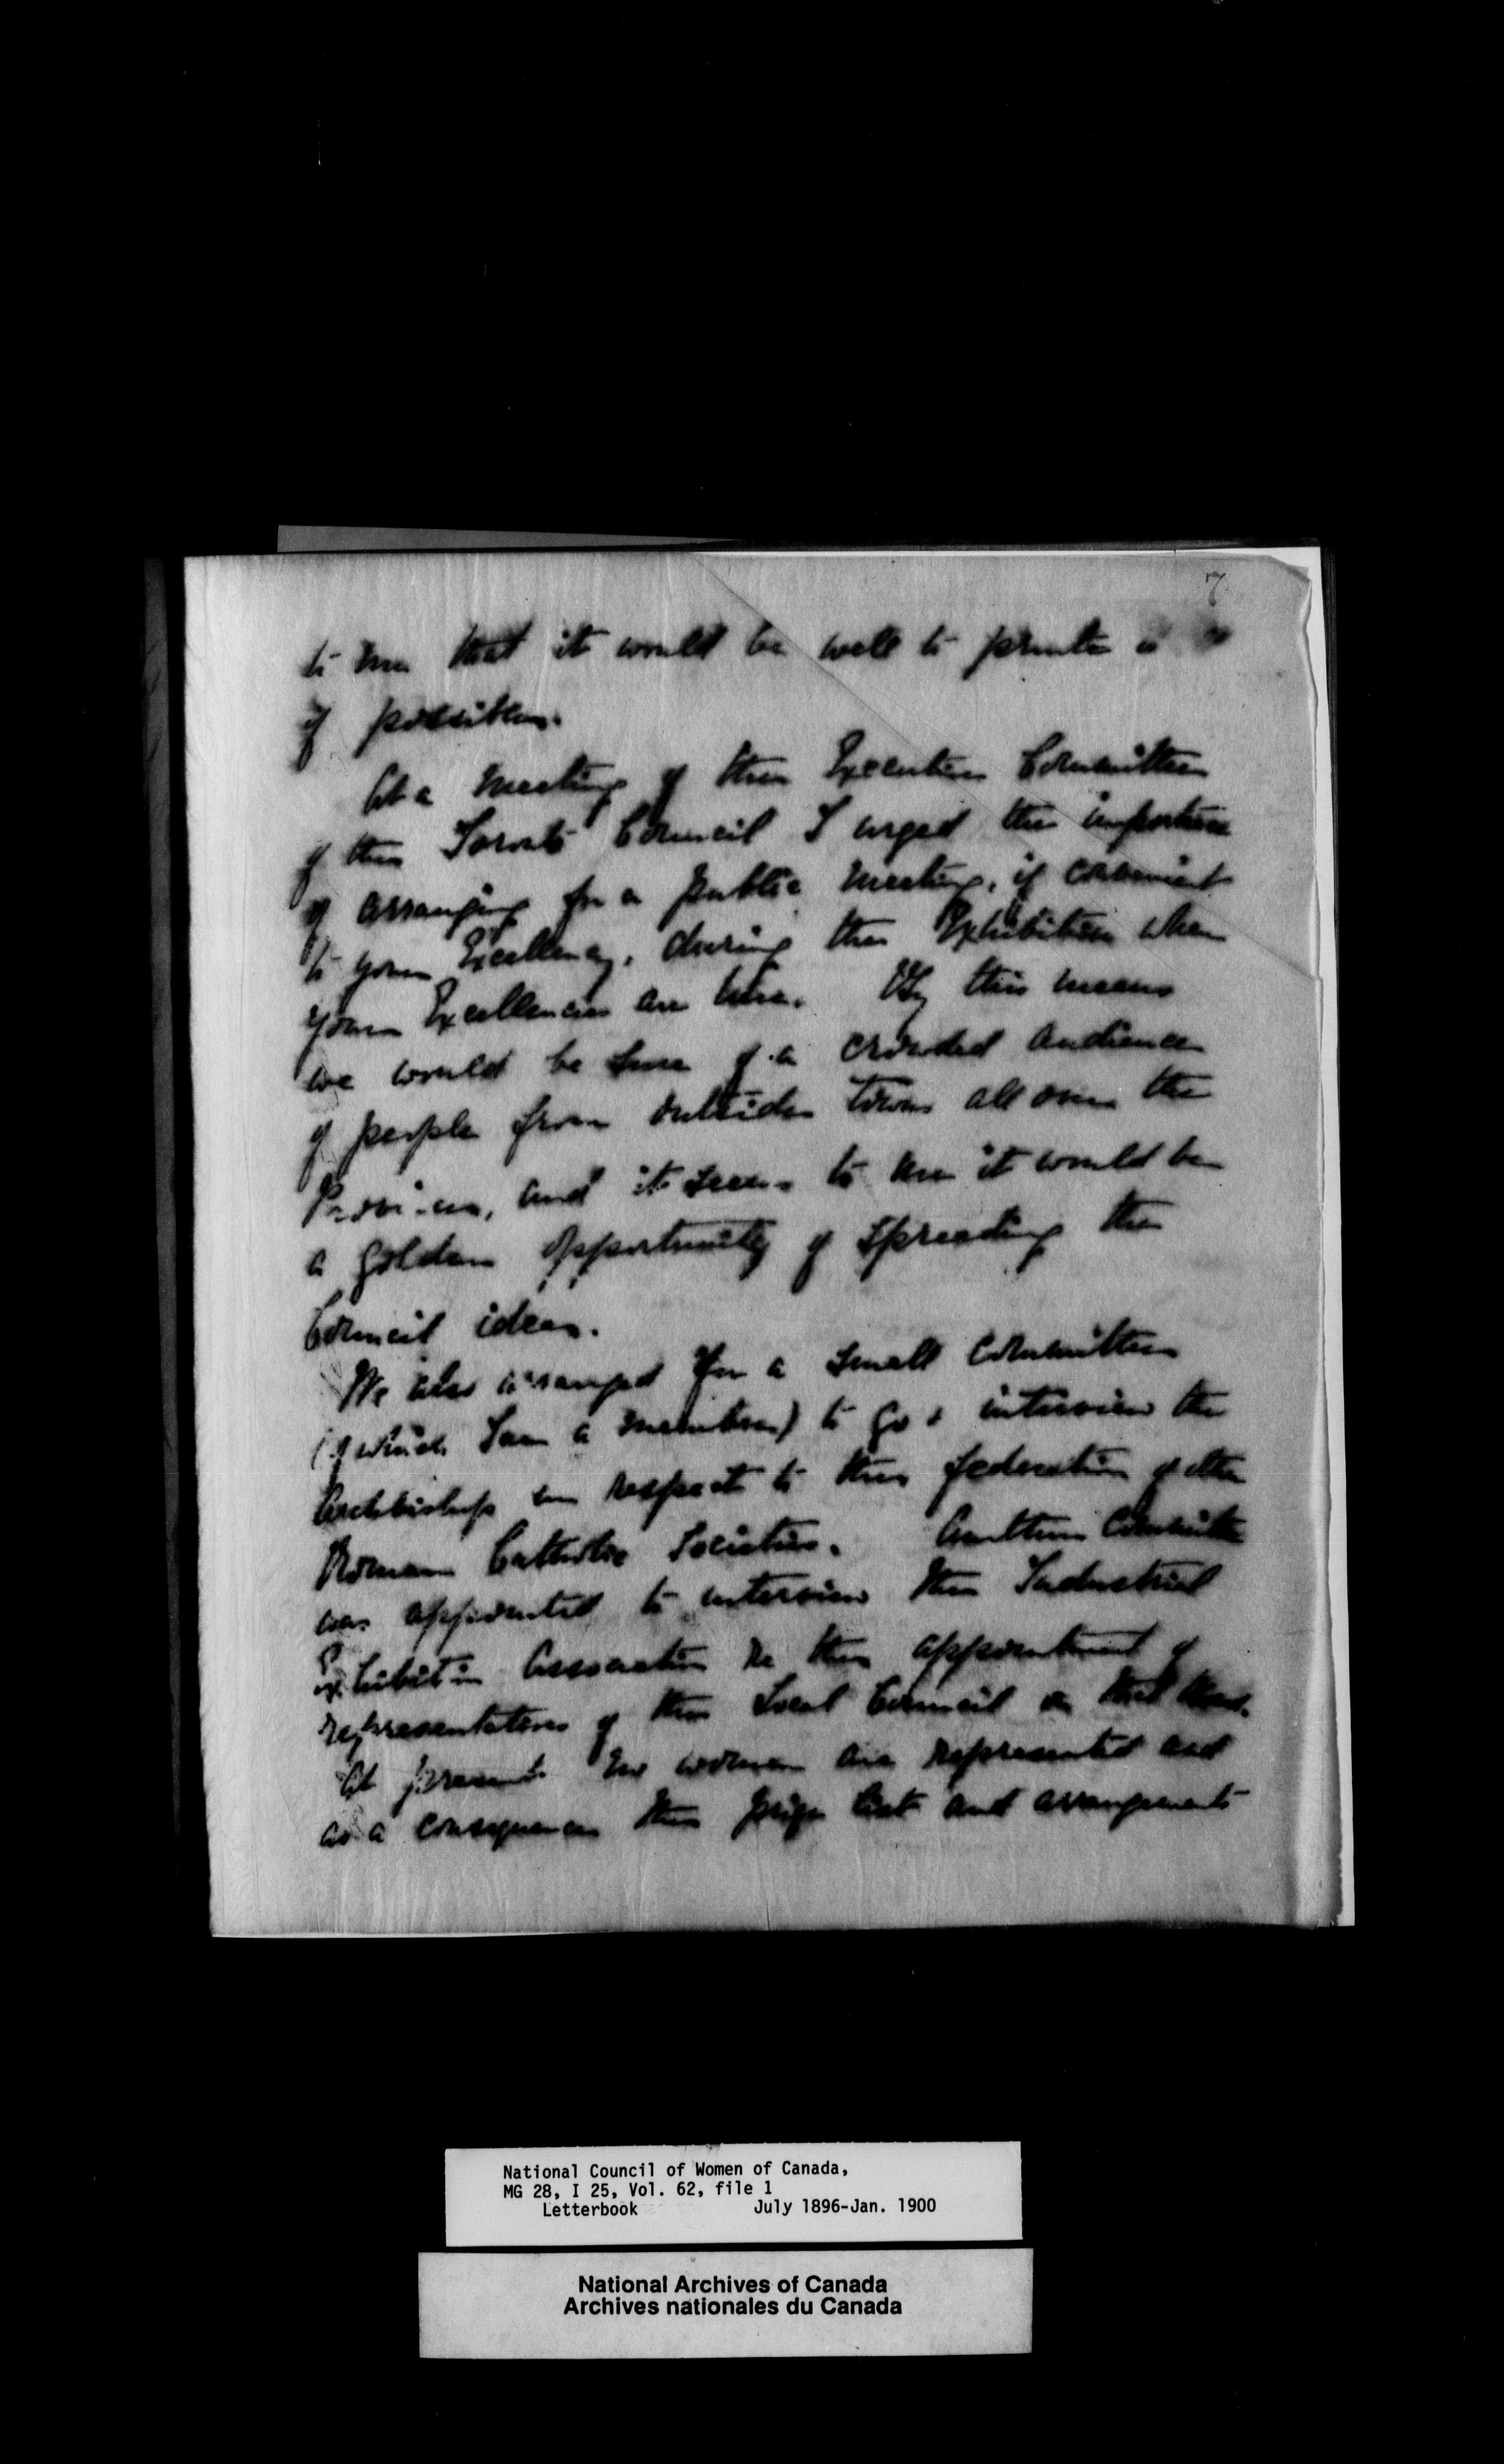 7
to me that it would be well to
if possible.
At a meeting of the Executive Committee
of the Toronto Council I urged the importance
of arranging for a public meeting, if convenient
to your Excellency, during the Exhibition when
your Excellencies are here. By this means
we would be sure of a crowded audience
of people from outside towns all over the
Province, and it seems to me it would be
a golden opportunity of spreading the
Council idea.
We also arranged for a small Committee
(of which I am a member) to go & interview the
Archbishop in respect to the federation of the
Roman Catholic Societies. Another Committee
was appointed to interview the Industrial
Exhibition Association re the appointment of
representatives of the Local Council on that Board.
At present no women are represented and
as a consequence the prize list and arrangements
National Council of Women of Canada,
MG 28, I 25, Vol. 62, file 1
Letterbook July 1896-Jan. 1900
National Archives of Canada
Archives nationales du Canada